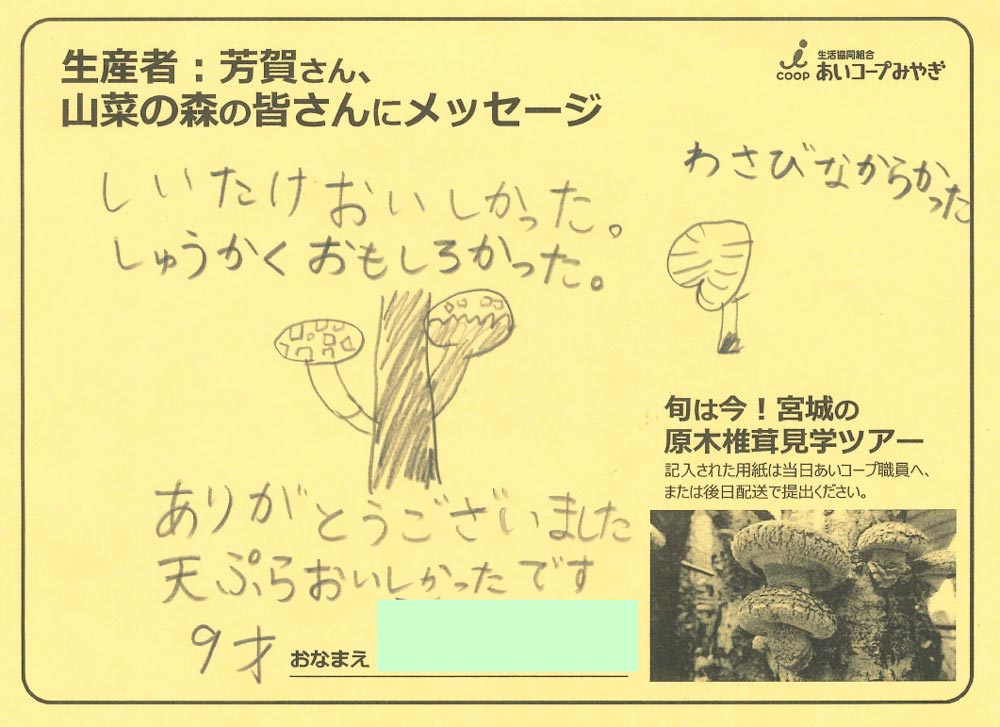 生産者：芳賀さん、
山菜の森の皆さんにメッセージ
coop
生活協同組合
あいコープみやぎ
しいたけおいしかった。
しゅうかくおもしろかった。
わさびなからかった
旬は今！宮城の
原木椎茸見学ツアー
記入された用紙は当日あいコープ職員へ、
または後日配送で提出ください。
ありがとうございました
天ぷらおいしかったです
9才
おなまえ